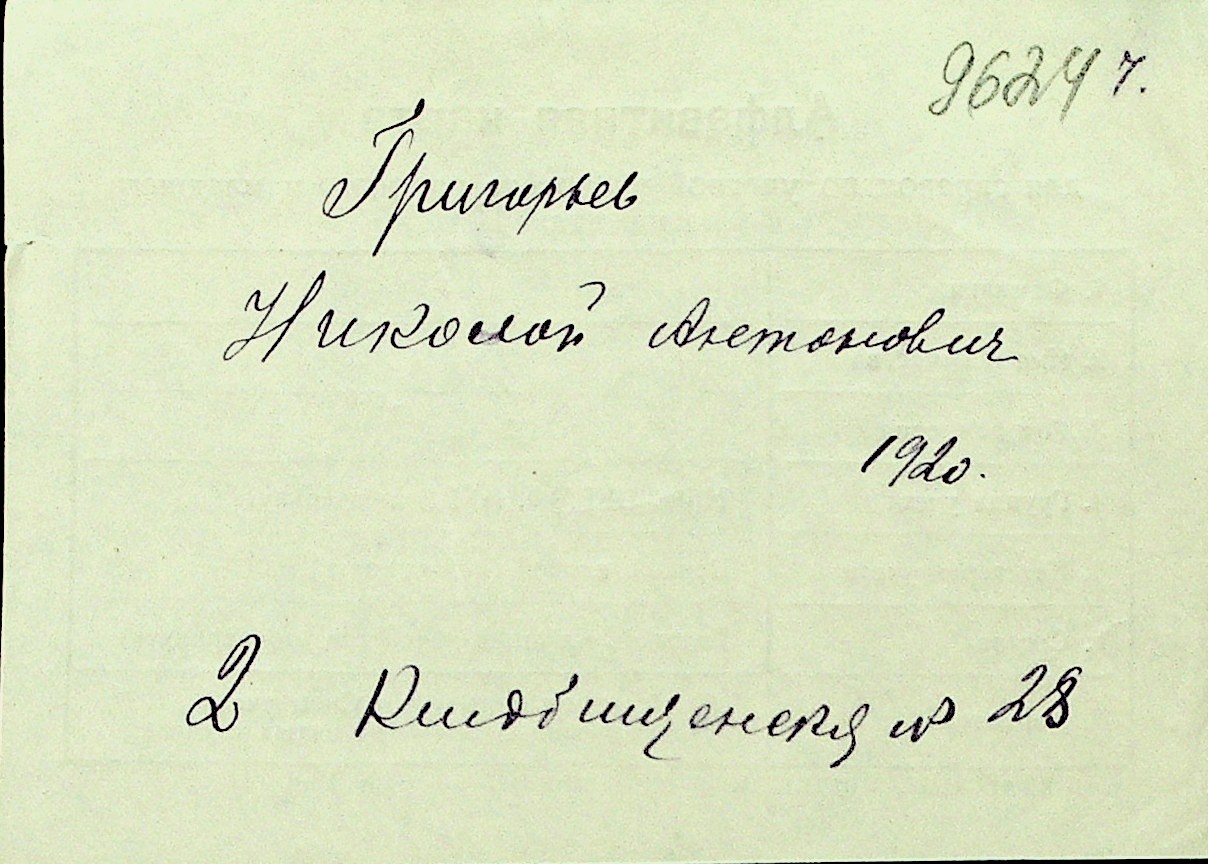 9624 ч.
Григорьев
Николай Антонович
1920.
2 Кладбищенская № 28